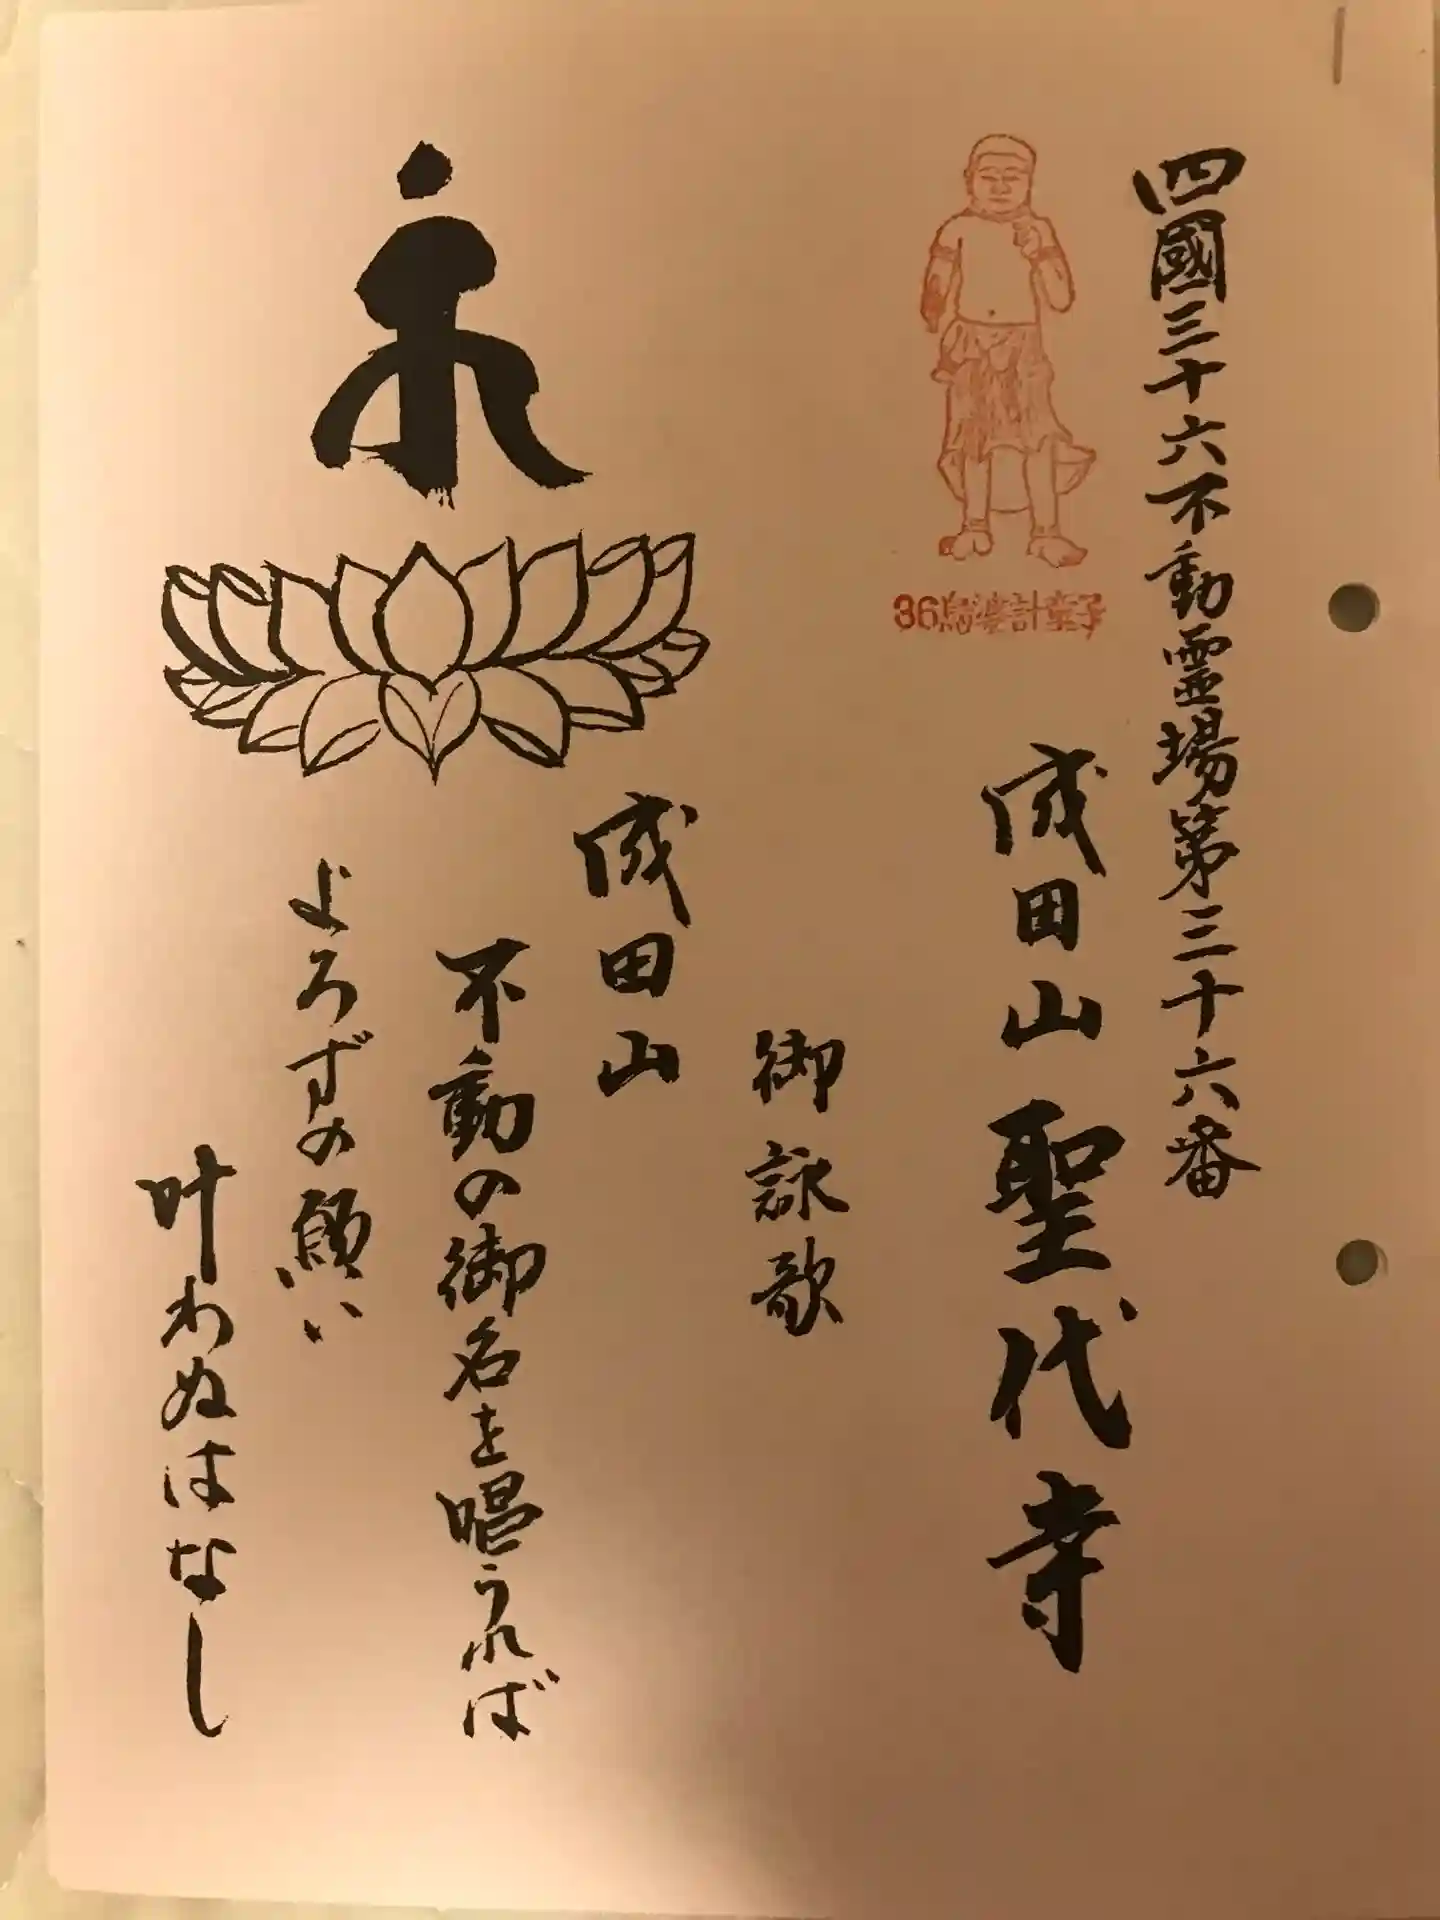 四國三十六不動霊場第三十六番
36烏婆計童子
成田山聖代寺
御詠歌
成田山
不動の御名を唱うれば
よろずの願い
叶わぬはなし